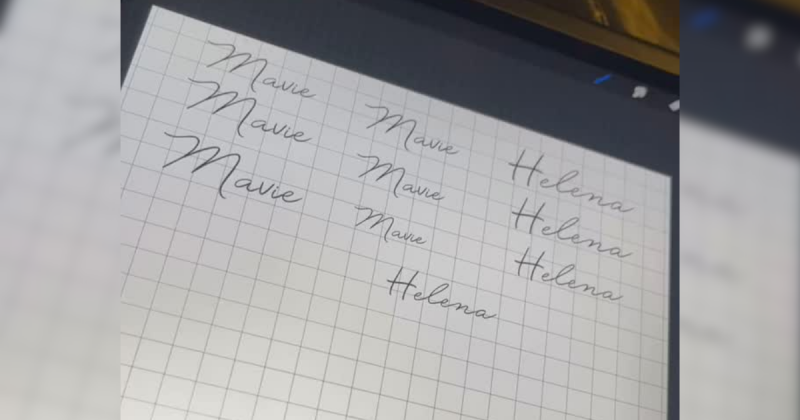 Mavie
Mavie
Mavie
Mavie
Mavie
Mavie
Helena
Helena
Helena
Helena